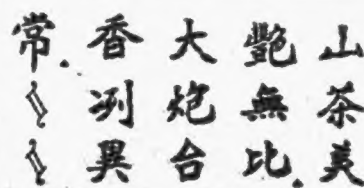 山茶美
艷無比.
大炮台
香冽異
常.〻〻